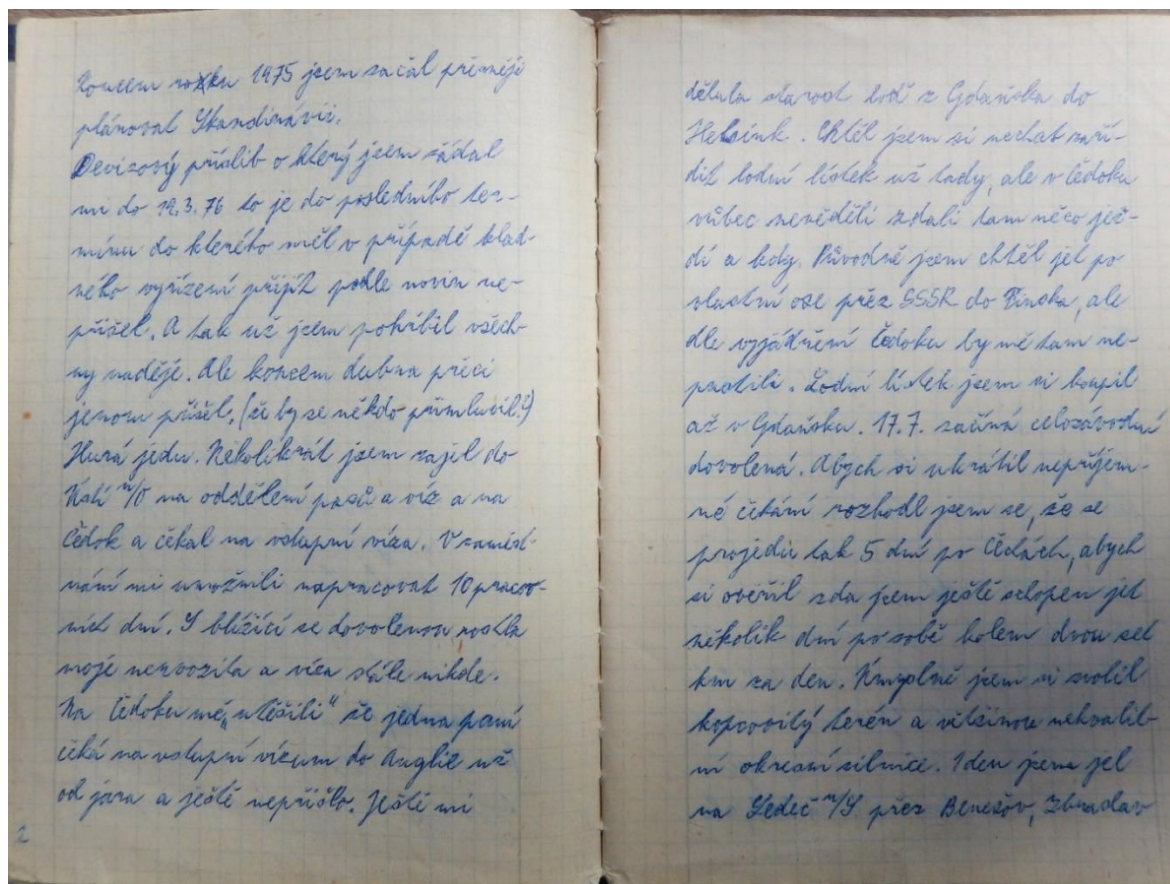 Koncem roku 1975 jsem začal přesněji
plánovat Skandinávii.
Devizový příslib o který jsem žádal
mi do 19.3.76 to je do posledního ter-
mínu do kterého měl v případě klad-
ného vyřízení přijít podle novin ne-
přišel. A tak už jsem pohřbil všech-
ny naděje. Ale koncem dubna přeci
jenom přišel. (že by se někdo přimluvil?)
Hurá jedu. Několikrát jsem zajel do
Ústí n/O na oddělení pasů a víz a na
Čedok a čekal na vstupní víza. V zaměst-
nání mi umožnili napracovat 10 pracov-
ních dní. S blížící se dovolenou rostla
moje nervozita a víza stále nikde.
Na Čedoku mě „utěšili“ že jedna paní
čeká na vstupní vízum do Anglie už
od jara a ještě nepřišlo. Ještě mi
2
dělala starost loď z Gdaňska do
Helsink. Chtěl jsem si nechat zaří-
dit lodní lístek už tady, ale v Čedoku
vůbec nevěděli zdali tam něco jez-
dí a kdy. Původně jsem chtěl jet po
vlastní ose přez SSSR do Finska, ale
dle vyjádření Čedoku by mě tam ne-
pustili. Lodní lístek jsem si koupil
až v Gdaňsku. 17.7. začíná celozávodní
dovolená. Abych si ukrátil nepříjem-
né čekání rozhodl jsem se, že se
projedu tak 5 dní po Čechách, abych
si ověřil zda jsem ještě schopen jet
několik dní po sobě kolem dvou set
km za den. Úmyslně jsem si zvolil
kopcovitý terén a většinou nekvalit-
ní okresní silnice. 1 den jsem jel
na Ledeč n/S přez Benešov, Zbraslav